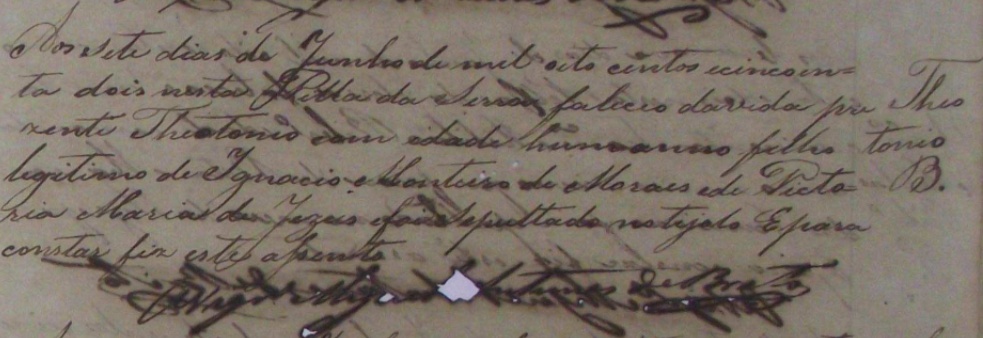 Aos sete dias de Junho de mil oito centos ecincoen=
ta dois nesta Villa da Serra faleceo davida pre
zente Theotonio com edade humanno filho
legitimo de Ignacio Monteiro de Moraes ede Victo=
ria Maria de Jezus foi sepultado notijolo Epara
constar fiz este assento
Miguel Antunes de Brito
Theo
tonio
B.